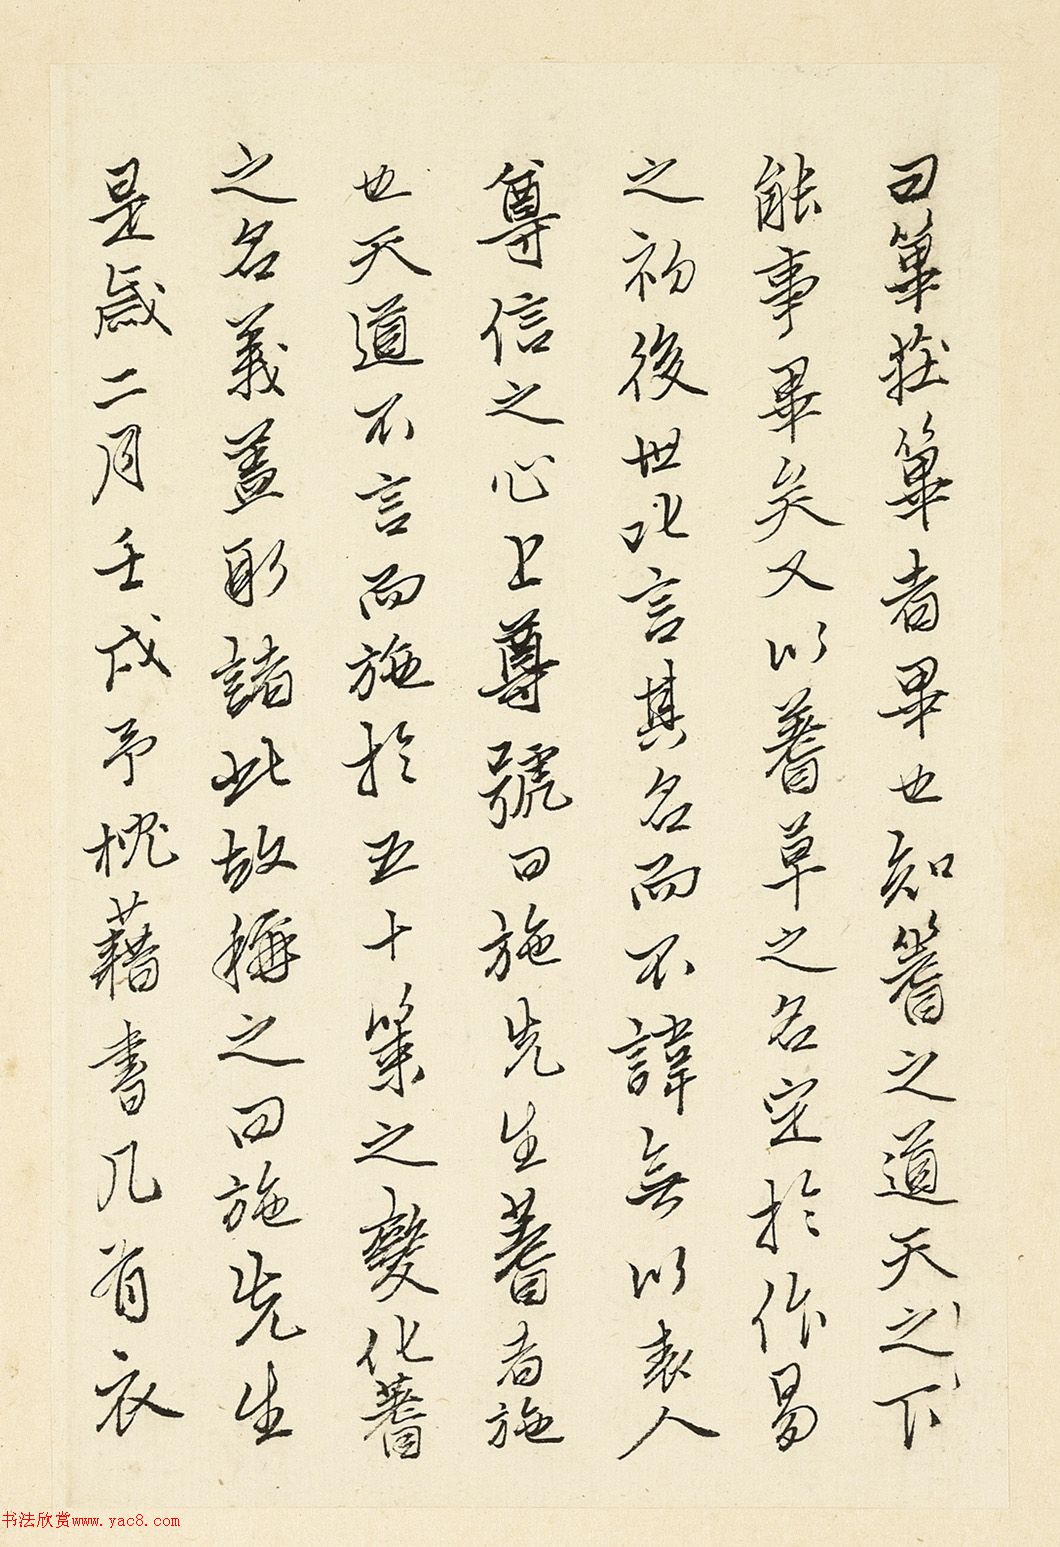 曰篳莊篳者畢也知蓍之道天之下
能事畢矣又以蓍草之名定於作易
之初後世叱言其名而不諱無以表人
尊信之心上尊號曰施先生蓍者施
也天道不言而施於五十策之變化蓍
之名義蓋取諸此故稱之曰施先生
是歲二月壬戌予枕藉書几有衣
书法欣赏www.yac8.com